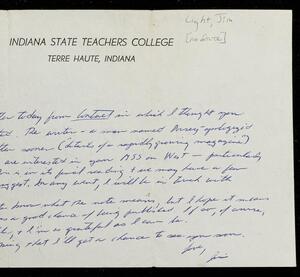 Light, Jim
[no date]
INDIANA STATE TEACHERS COLLEGE
TERRE HAUTE, INDIANA
ter today from in which I thought you
ted. The writer - a man named
ther sooner (details of a rapidly growing magazine")
are interested in your MSS on West - particularly
is in its final reading & we may have a few
suggest. In any event, I will be in touch with
know what the note means, but I hope it means
as a good chance of being published. If so, of course,
& I'm as grateful as I can be.
ing that I'll get a chance to see you soon.
Love,
Jim